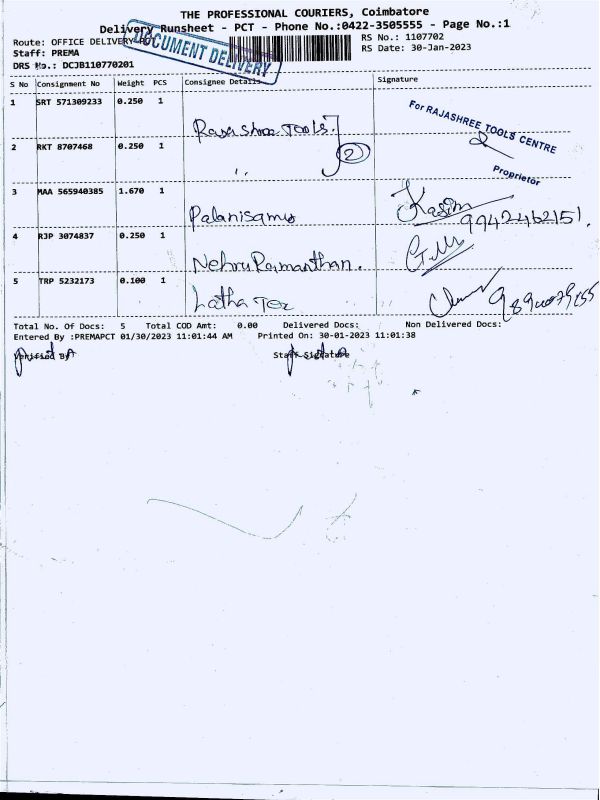 THE PROFESSIONAL COURIERS, Coimbatore
Delivery Runsheet - PCT - Phone No.:0422-3505555 - Page No.:1
Route: OFFICE DELIVERY
RS No.: 1107702
Staff: PREMA
RS Date: 30-Jan-2023
DOCUMENT DELIVERY
DRS No.: DCJB110770201
S No Consignment No Weight PCS Consignee Details Signature
1 SRT 571309233 0.250 1
Rajashree Tools.
For RAJASHREE TOOLS CENTRE
Proprietor
2 RKT 8707468 0.250 1
2
3 MAA 565940385 1.670 1
Palanisamy
Kasim
9942462151.
4 RJP 3074837 0.250 1
Nehru
5 TRP 5232173 0.100 1
Latha Tex
Total No. Of Docs: 5 Total COD Amt: 0.00 Delivered Docs: Non Delivered Docs:
Entered By :PREMAPCT 01/30/2023 11:01:44 AM Printed On: 30-01-2023 11:01:38
Verified By
Staff Signature